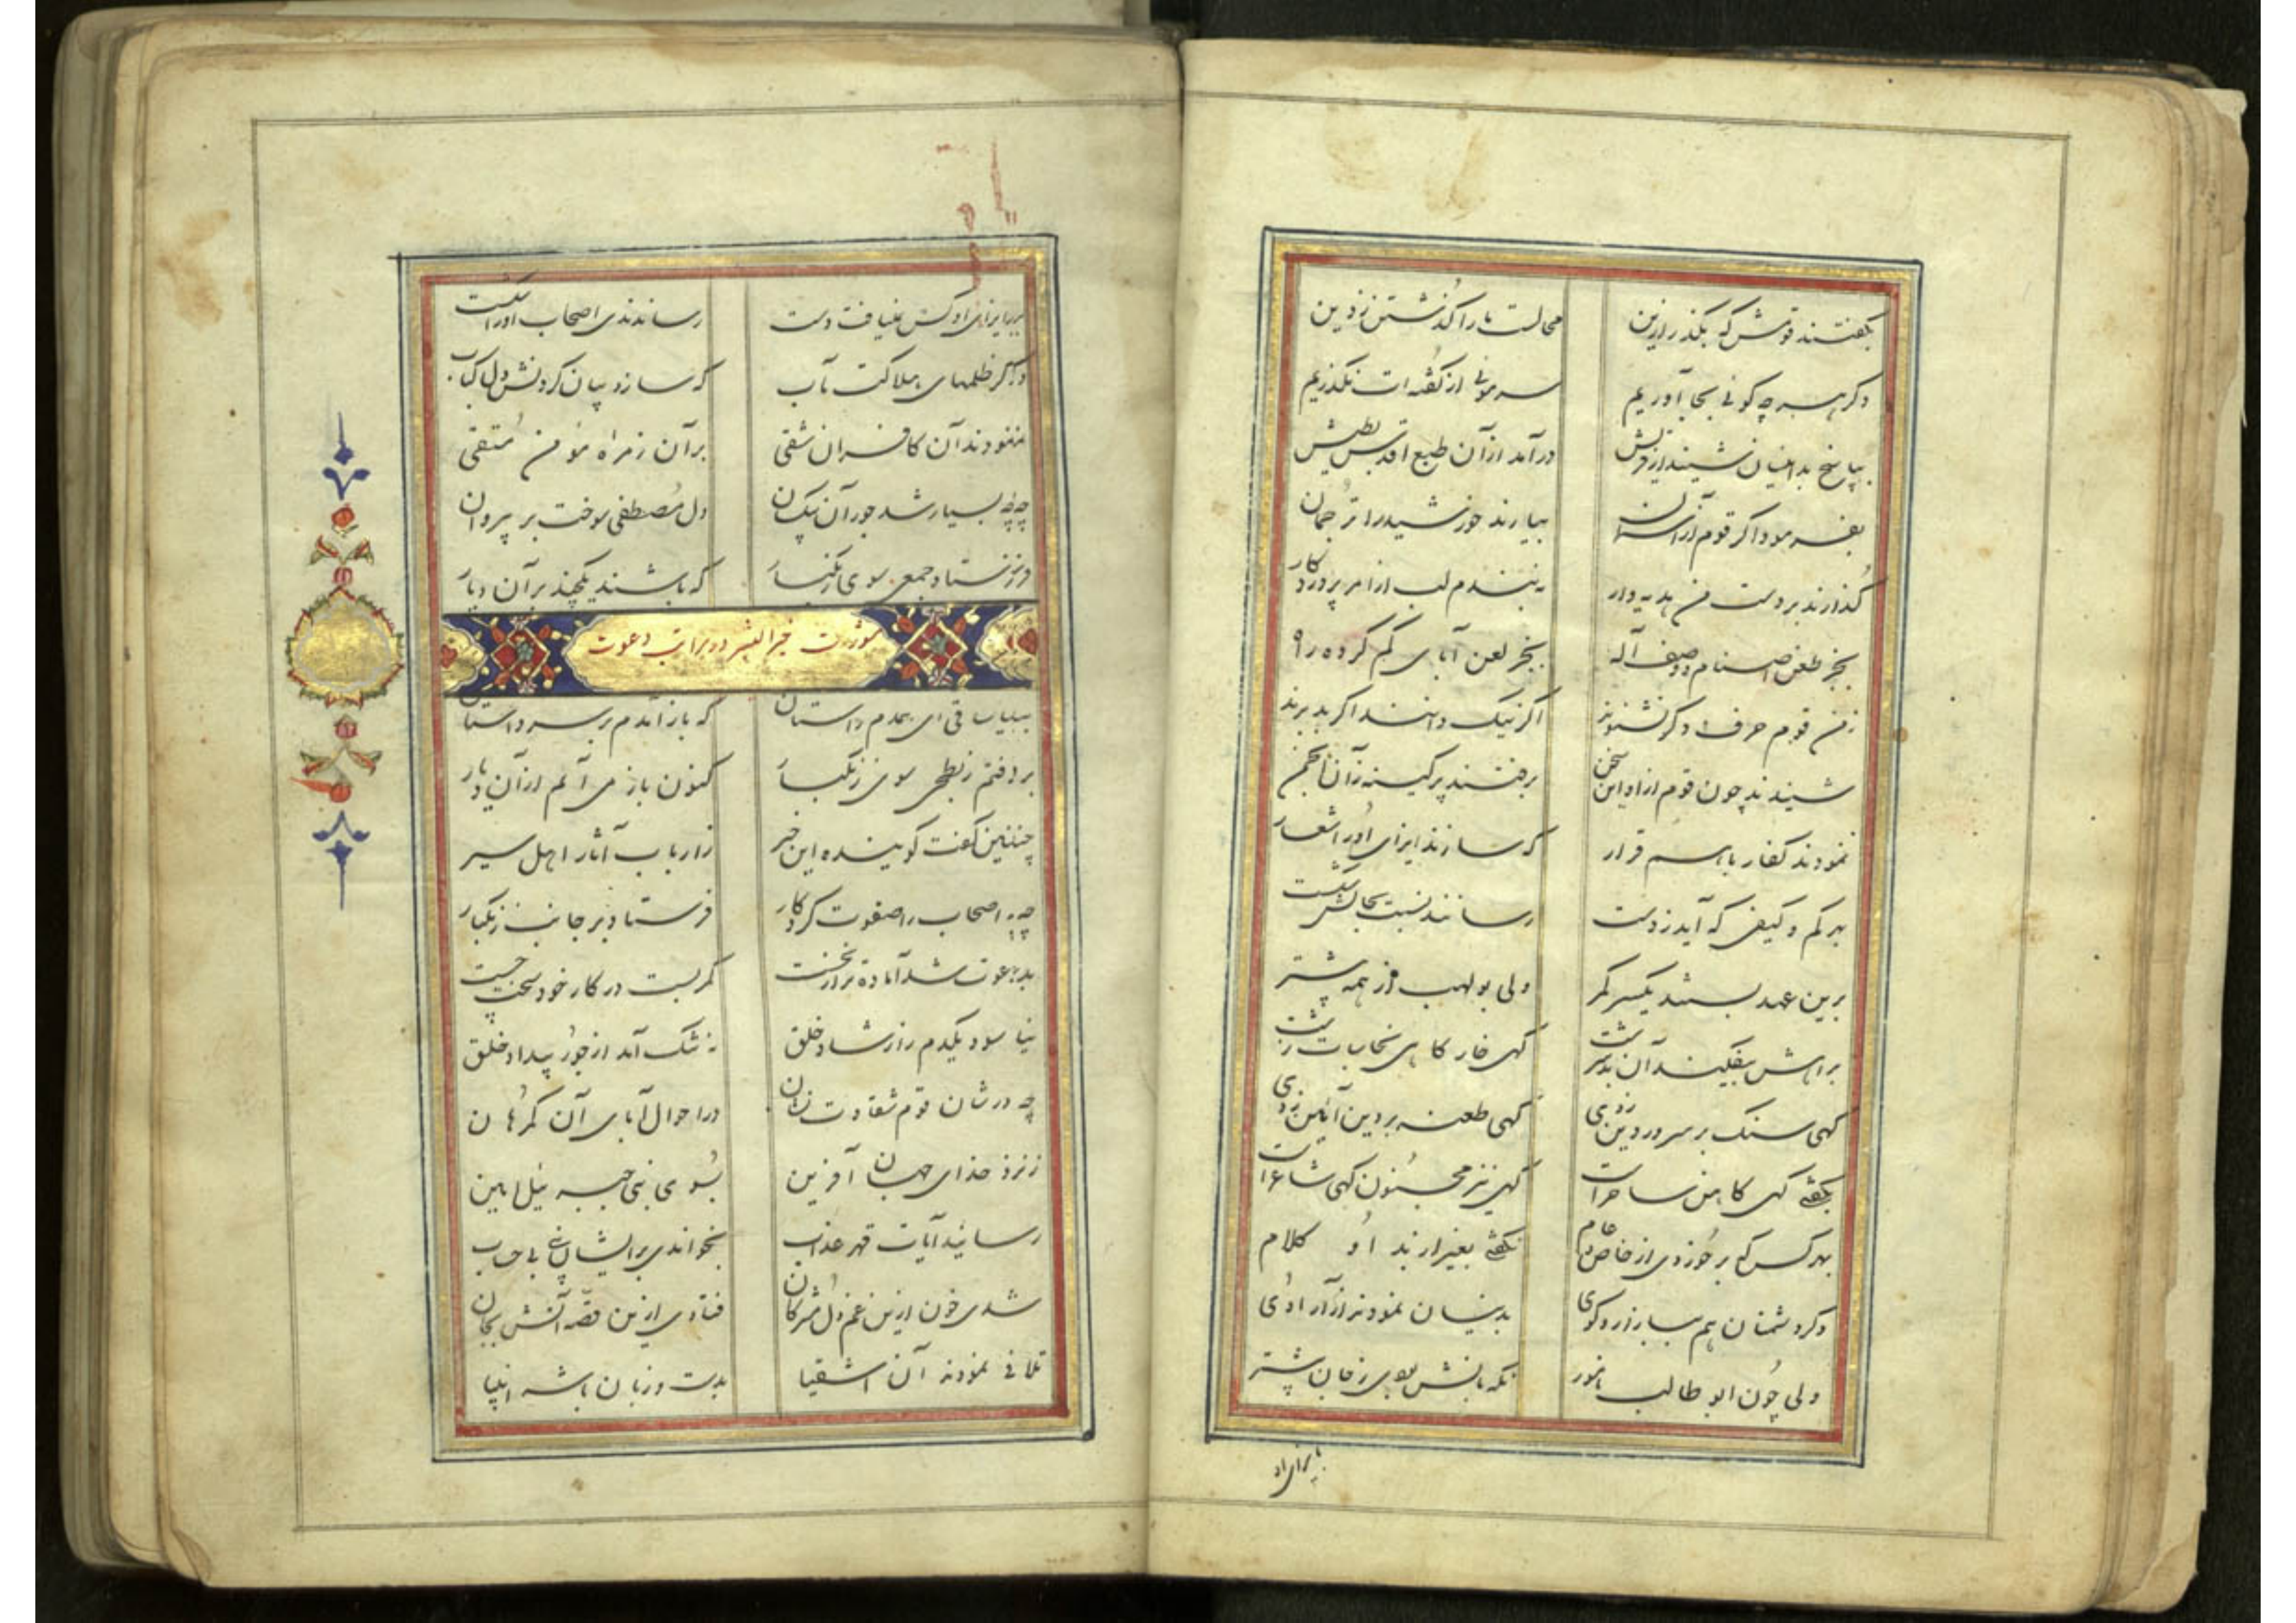 بگفتند قومش که بگذر ازین محالست ما را گذشتن ز دین
دگر هر چه گوئی بجا آوریم سر موئی از گفته ات نگذریم
بپاسخ بدانسان شنید از قریش در آمد از آن طبع اقدس بطیش
بفرمود اگر قوم از آسمان بیارند خورشید را ترجمان
گذارند بر دست من هدیه وار نه بندم لب از امر پروردگار
بجز طعن اصنام و وصف آله بجز لعن آبای گم کرده ره
ز من قوم حرف دگر نشنوند اگر نیک دانند اگر بد برند
شنیدند چون قوم از او این سخن برفتند پر کینه زان انجمن
نمودند کفار با هم قرار که سازند ایذای او را شعار
بهر کم و کیفی که آید ز دست رسانند نسبت بحالش شکست
برین عهد بستند یکسر کمر ولی بولهب از همه پیشتر
براهش بیفکند آن بد سرشت گهی خار گاهی نجاسات زشت
گهی سنگ بر سرور دین زدی گهی طعنه بر دین و آئین زدی
بگفتی گهی کاهن و ساحر است گهی نیز مجنون گهی شاعر است
بهر کس که بر خوردی از خاص و عام نگفتی بغیر از بد او کلام
دگر دشمنان هم ببازار و کوی بدینسان نمودند آزار اوی
ولی چون ابو طالب نامور نگهبانش بودی ز جان بیشتر
بایذای او
بر ایذای او کس نمی یافت دست رساندندی اصحاب او را شکست
دگر ظلمهای هلاکت مآب که سازد بیان کردنش دل کباب
نمودند آن کافران شقی بر آن زمره مؤمن متقی
چه بسیار شد جور آن پیکان دل مصطفی سوخت بر پیروان
فرستاد جمعی سوی زنگبار که باشند یکچند بر آن دیار
خیر البشر در مراتب دعوت
بیا ساقی ای همدم راستان که باز آمدم بر سر داستان
برفتم ز بطحی سوی زنگبار کنون باز می آیم از آن دیار
چنین گفت گوینده این خبر ز ارباب آثار و اهل سیر
چه اصحاب را صفوت کردگار فرستاد بر جانب زنگبار
بدعوت شد آماده تر از نخست کمر بست در کار خود سخت چست
نیاسود یکدم ز ارشاد خلق نه تنگ آمد از جور و بیداد خلق
چه در شان قوم شقاوت نشان در احوال آبای آن گمرهان
ز نزد خدای جهان آفرین بسوی نبی جبرئیل امین
رسانید آیات قهر و عذاب بخواندی بر ایشان بی حجاب
شدی خون ازین غم دل مشرکان فتادی ازین قصه آتش بجان
تلافی نمودند آن اشقیا بدست و زبان با شه انبیا